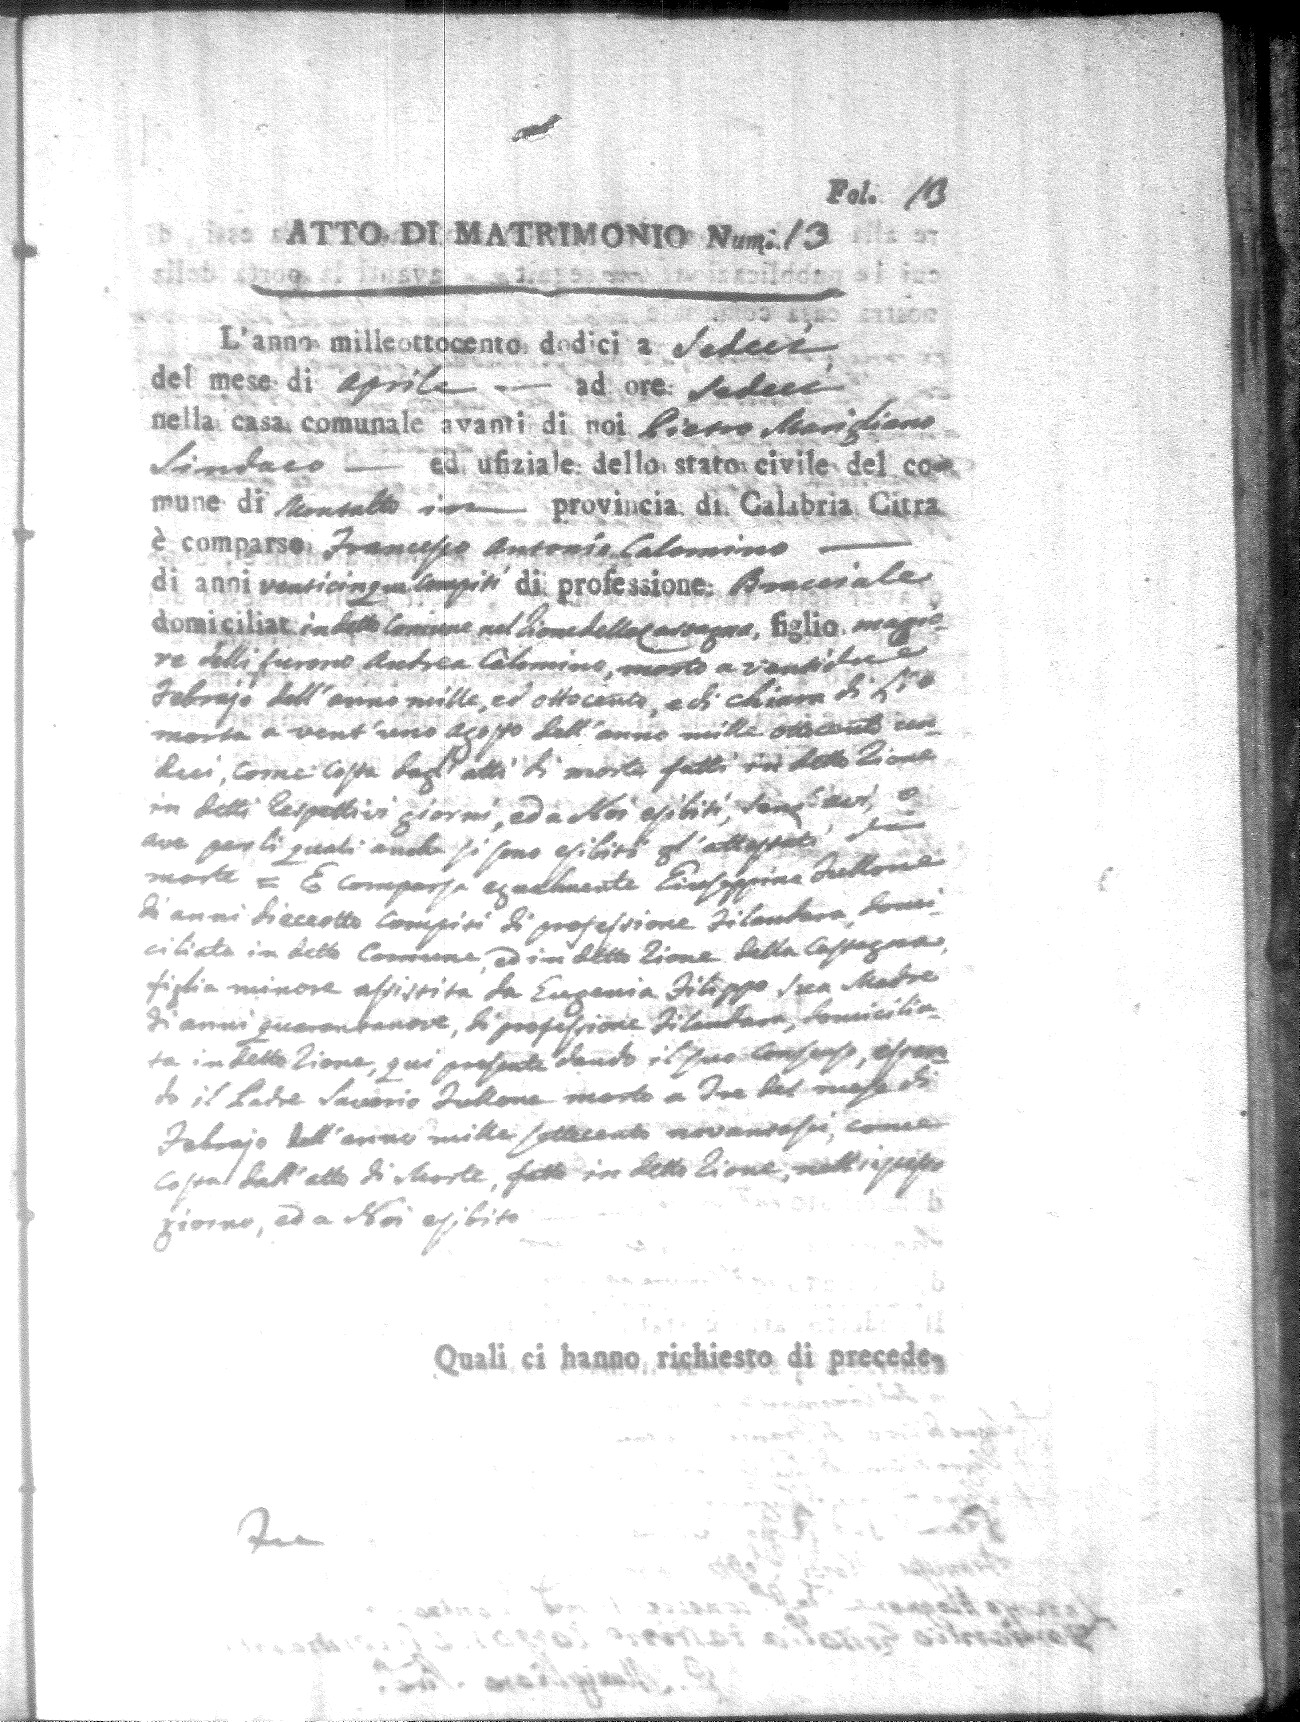 Fol. 13
ATTO DI MATRIMONIO Num. 13
L'anno milleottocento dodici a Sedeci
del mese di Aprile — ad ore Sedeci
nella casa comunale avanti di noi Pietro Marigliano
Sindaco — ed ufiziale dello stato civile del co-
mune di Montalto in provincia di Calabria Citra
è comparso Francesco Antonio Calomino —
di anni venticinque compiti di professione Bracciale
domiciliat in detto Comune nel Rione della Castagna, figlio maggio-
re delli furono Andrea Calomino, morto a ventidue
Febrajo dell'anno mille, ed ottocento, e di Chiara di
morta a vent'uno Agosto dell'anno mille ottocento un-
deci, come costa dagl'atti di morte fatti in detto Rione
in detti respettivi giorni, ed a Noi esibiti, senz' avi, o
ave per li quali anche si sono esibiti gl'attestati di
morte = E comparsa egualmente Giuseppina Fullone
di anni dieceotto compiti di professione Filandara, domi-
ciliata in detto Comune, ed in detto Rione della Castagna,
figlia minore assistita da Eugenia Filippo sua Madre
di anni quarantanove, di professione Filandara, domicilia-
ta in detto Rione, qui presente dando il suo consenso, essen-
do il Padre Saverio Fullone morto a Tre del mese di
Febrajo dell'anno mille settecento novantasei, come
costa dall'atto di Morte, fatto in detto Rione, nell'istesso
giorno, ed a Noi esibito
Quali ci hanno richiesto di precede-